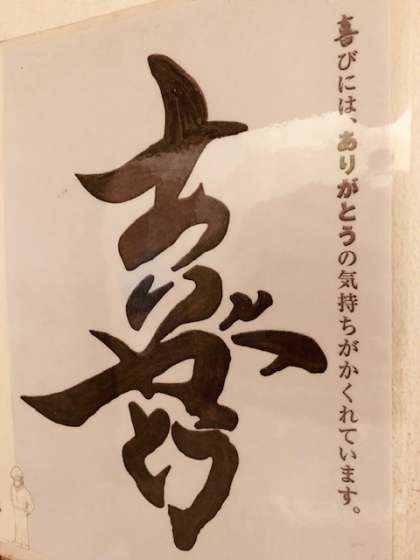 喜びには、ありがとうの気持ちがかくれています。
喜